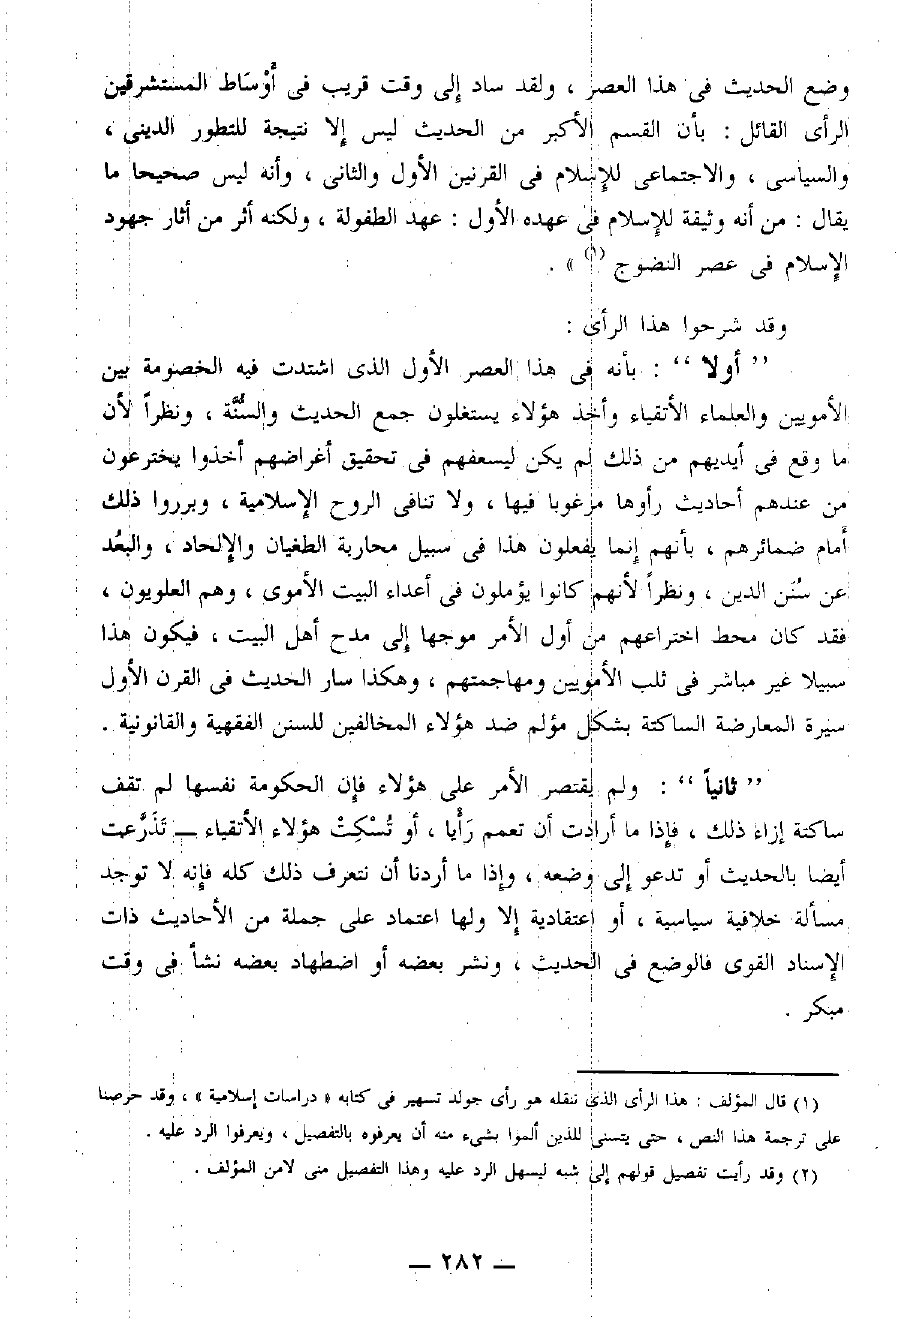 وضع الحديث فى هذا العصر ، ولقد ساد إلى وقت قريب فى أَوْسَاط المستشرقين
الرأى القائل : بأن القسم الأكبر من الحديث ليس إلا نتيجة للتطور الدينى ،
والسياسى ، والاجتماعى للإسلام فى القرنين الأول والثانى ، وأنه ليس صحيحا ما
يقال : من أنه وثيقة للإسلام فى عهده الأول : عهد الطفولة ، ولكنه أثر من أثار جهود
الإسلام فى عصر النضوج (١) » .
وقد شرحوا هذا الرأى :
” أولا “ : بأنه فى هذا العصر الأول الذى اشتدت فيه الخصومة بين
الأمويين والعلماء الأتقياء وأخذ هؤلاء يستغلون جمع الحديث والسُّنَّة ، ونظراً لأن
ما وقع فى أيديهم من ذلك لم يكن ليسعفهم فى تحقيق أغراضهم أخذوا يخترعون
من عندهم أحاديث رأوها مرغوبا فيها ، ولا تنافى الروح الإسلامية ، وبرروا ذلك
أمام ضمائرهم ، بأنهم إنما يفعلون هذا فى سبيل محاربة الطغيان والإلحاد ، والبعُد
عن سُنَن الدين ، ونظراً لأنهم كانوا يؤملون فى أعداء البيت الأموى ، وهم العلويون ،
فقد كان محط اختراعهم من أول الأمر موجها إلى مدح أهل البيت ، فيكون هذا
سبيلا غير مباشر فى ثلب الأمويين ومهاجمتهم ، وهكذا سار الحديث فى القرن الأول
سيرة المعارضة الساكتة بشكل مؤلم ضد هؤلاء المخالفين للسنن الفقهية والقانونية .
” ثانياً “ : ولم يقتصر الأمر على هؤلاء فإن الحكومة نفسها لم تقف
ساكتة إزاء ذلك ، فإذا ما أرادت أن تعمم رَأْيا ، أو تُسْكِتْ هؤلاء الأتقياء — تَذَرَّعت
أيضا بالحديث أو تدعو إلى وضعه ، وإذا ما أردنا أن نتعرف ذلك كله فإنه لا توجد
مسألة خلافية سياسية ، أو اعتقادية إلا ولها اعتماد على جملة من الأحاديث ذات
الإسناد القوى فالوضع فى الحديث ، ونشر بعضه أو اضطهاد بعضه نشأ فى وقت
مبكر .
(١) قال المؤلف : هذا الرأى الذى ننقله هو رأى جولد تسهير فى كتابه « دراسات إسلامية » ، وقد حرصنا
على ترجمة هذا النص ، حتى يتسنى للذين ألموا بشىء منه أن يعرفوه بالتفصيل ، ويعرفوا الرد عليه .
(٢) وقد رأيت تفصيل قولهم إلى شبه ليسهل الرد عليه وهذا التفصيل منى لامن المؤلف .
— ٢٨٢ —